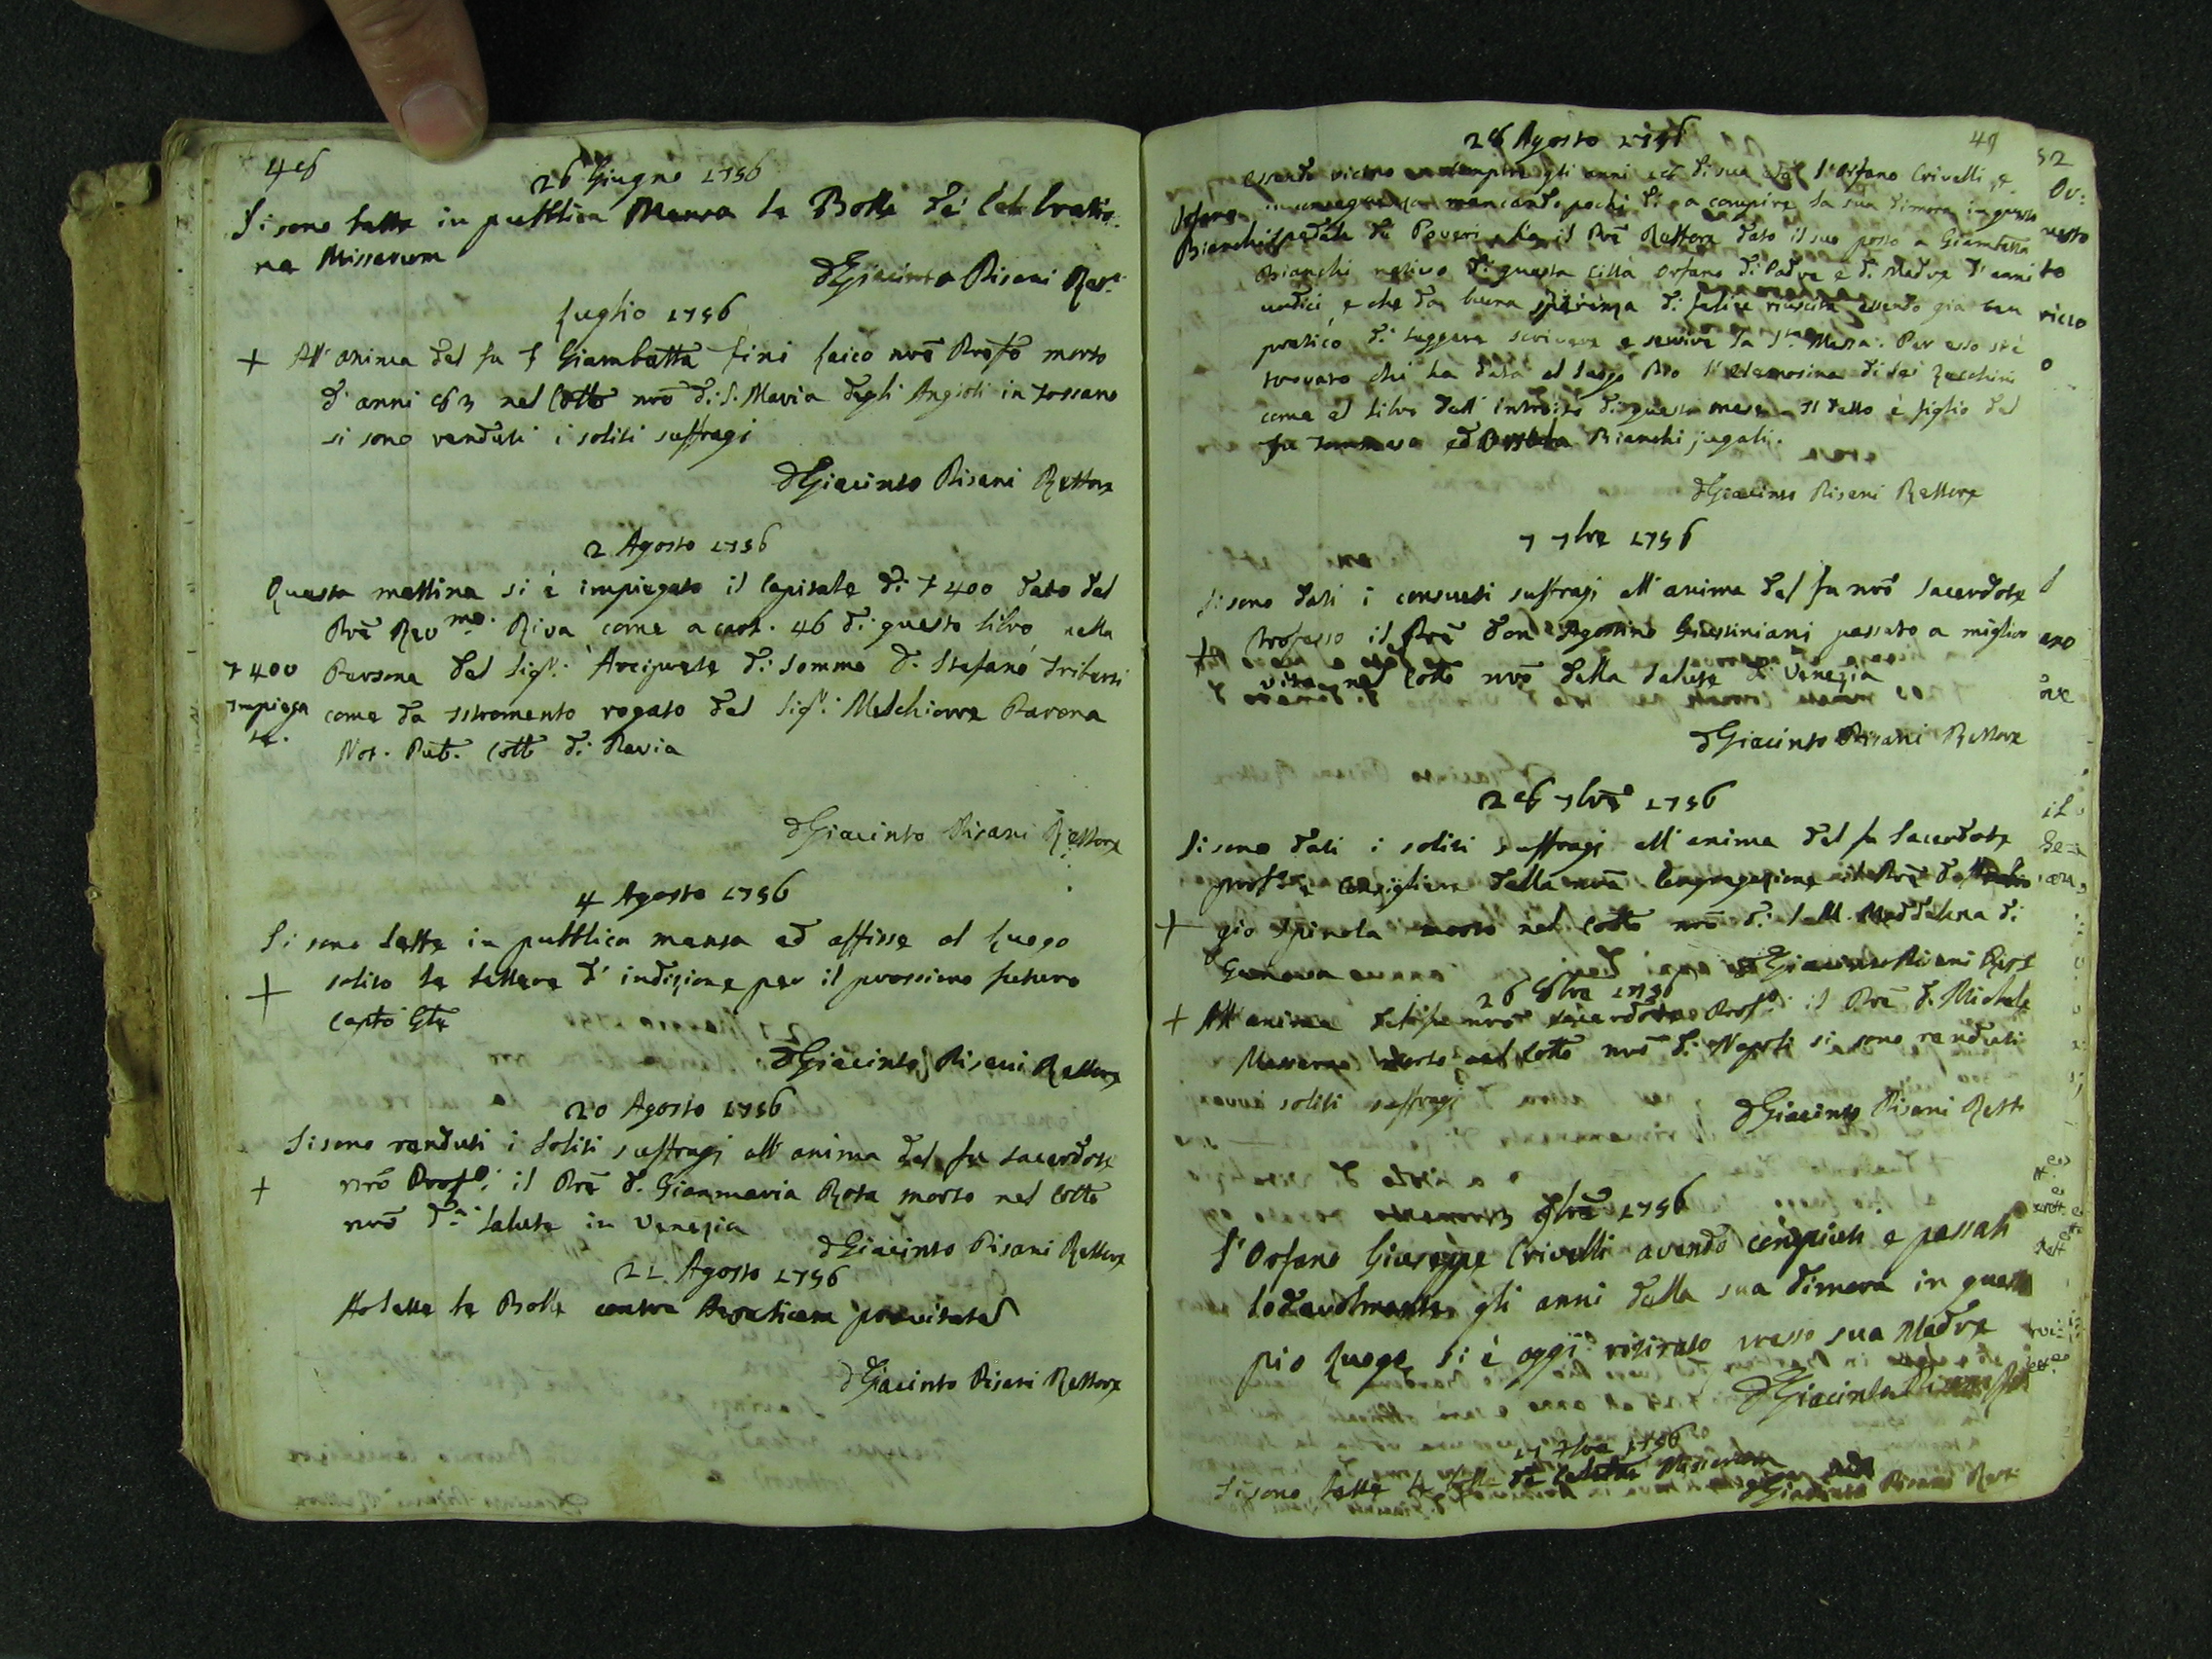 48
26 Giugno 1756
Si sono lette in pubblica Mensa le Bolle De Celebratio-
ne Missarum
D Giacinto Pisani Ret.e
Luglio 1756
+ All' anima del fu F Giambatta Fini Laico nro Profo morto
d' anni 83 nel Collo nro di S. Maria degli Angioli in Fossano
si sono renduti i soliti suffragi
D Giacinto Pisani Rettore
2 Agosto 1756
Questa mattina si è impiegato il Capitale di 400 dato dal
Pre Revmo. Riva come a cart. 46 di questo libro nella
400 Persona del Sigr. Arciprete di Sommo D. Stefano
Impiega come da Istromento rogato dal Sigr. Melchiorre Pavona
te. Not. Pub. Coll di Pavia
D Giacinto Pisani Rettore
4 Agosto 1756
Si sono lette in pubblica mensa ed affisse al luogo
+ solito le lettere d' indizione per il prossimo futuro
Capto Gle
D Giacinto Pisani Rettore
20 Agosto 1756
Si sono renduti i soliti suffragi all' anima del fu sacerdote
+ nro Profo. il Pre D. Gianmaria Rota morto nel Collo
nro Salute in Venezia
D Giacinto Pisani Rettore
21 Agosto 1756
Ho lette le Bolle contra
D Giacinto Pisani Rettore
49
28 Agosto 1756
essendo vicino a compire gli anni 18 di sua età l' Orfano Crivelli, e
in conseguenza mancando pochi dì a compire la sua dimora in questo
Orfano
Bianchi spedale de Poveri, ha il Pre Rettore dato il suo posto a Giambatta
Bianchi nativo di questa Città orfano di Padre e di Madre d' anni
undici, e che da buona speranza di felice riuscita essendo già ben
pratico di leggere scrivere e servire la Sta Messa. Per esso si è
trovato chi ha data al Luogo Pio l' elemosina di sei Zecchini
come al libro dell' introito di questo mese. Il detto è figlio del
fu Tommaso ed Bianchi jugali.
D Giacinto Pisani Rettore
7 7bre 1756
Si sono dati i consueti suffragi all' anima del fu nro Sacerdote
+ Professo il Pre Don Agostino Giustiniani passato a miglior
vita nel Collo nro della Salute di Venezia
D Giacinto Pisani Rettore
28 7bre 1756
Si sono dati i soliti suffragi all' anima del fu Sacerdote
profso e Consigliere della nra Congregazione il Pre D.
+ gio Spinola morto nel Collo nro di S.M. Maddalena di
Genova D Giacinto Pisani Rett
26 8bre 1756
+ All' anima del fu nro sacerdote Profo. il Pre D. Michele
Masserano morto nel Collo nro di Napoli si sono renduti
i soliti suffragi
D Giacinto Pisani Rett
9bre 1756
L' Orfano Giuseppe Crivelli avendo compiuti e passati
lodevolmente gli anni della sua dimora in questo
pio Luogo, si è oggi ritirato presso sua Madre
D Giacinto Pisani
1756
Si sono lette le bolle de Celebr. Missarum
D Giacinto Pisani Rett